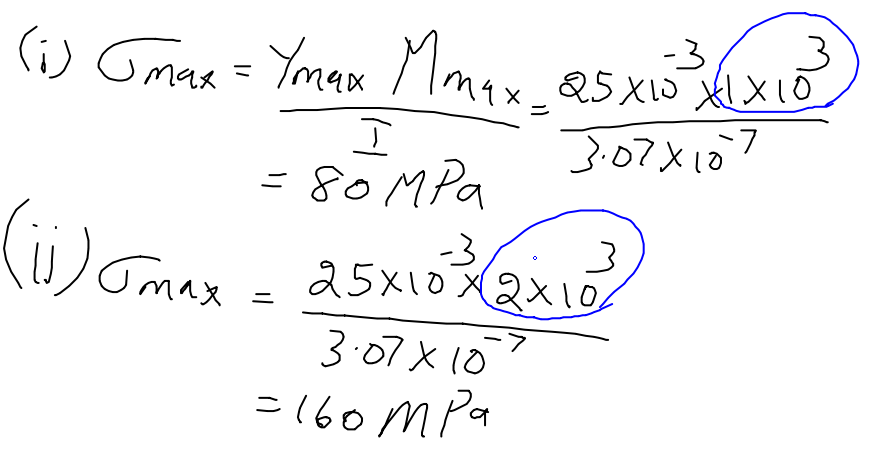 (i) σmax = Ymax Mmax / I = 25×10^-3 ×1×10^3 / 3.07×10^-7
= 80 MPa
(ii) σmax = 25×10^-3 × 2×10^3 / 3.07×10^-7
= 160 MPa